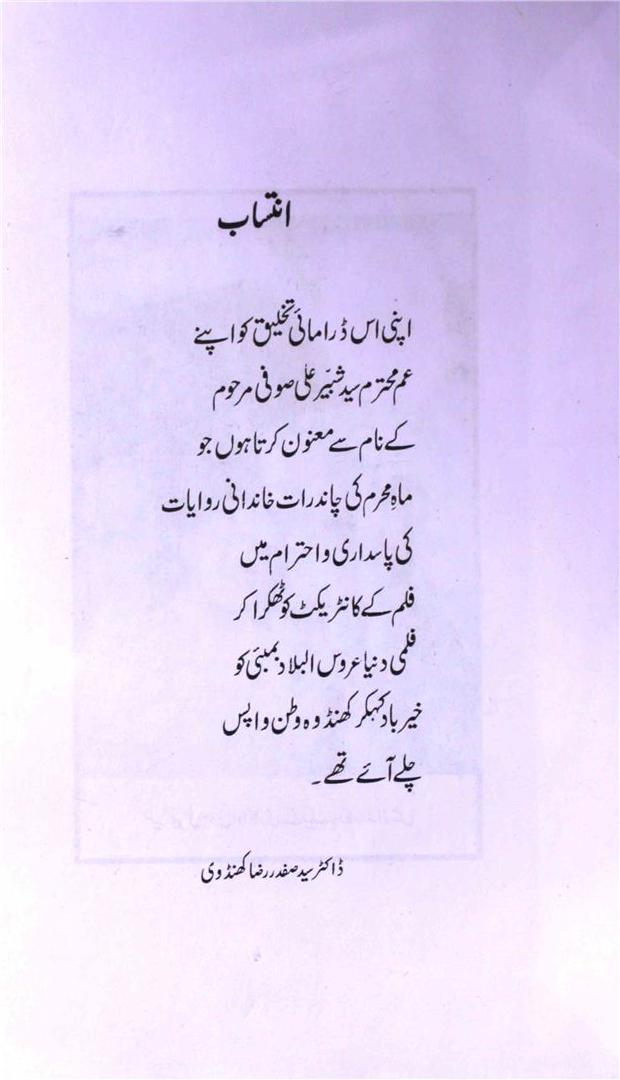 انتساب
اپنی اس ڈرامائی تخلیق کو اپنے
عم محترم سید شبّیر علی صوفی مرحوم
کے نام سے معنون کرتا ہوں جو
ماہِ محرم کی چاندرات خاندانی روایات
کی پاسداری و احترام میں
فلم کے کانٹریکٹ کو ٹھکرا کر
فلمی دنیا عروس البلاد بمبئی کو
خیرباد کہکر کھنڈوہ وطن واپس
چلے آئے تھے۔
ڈاکٹر سید صفدر رضا کھنڈوی